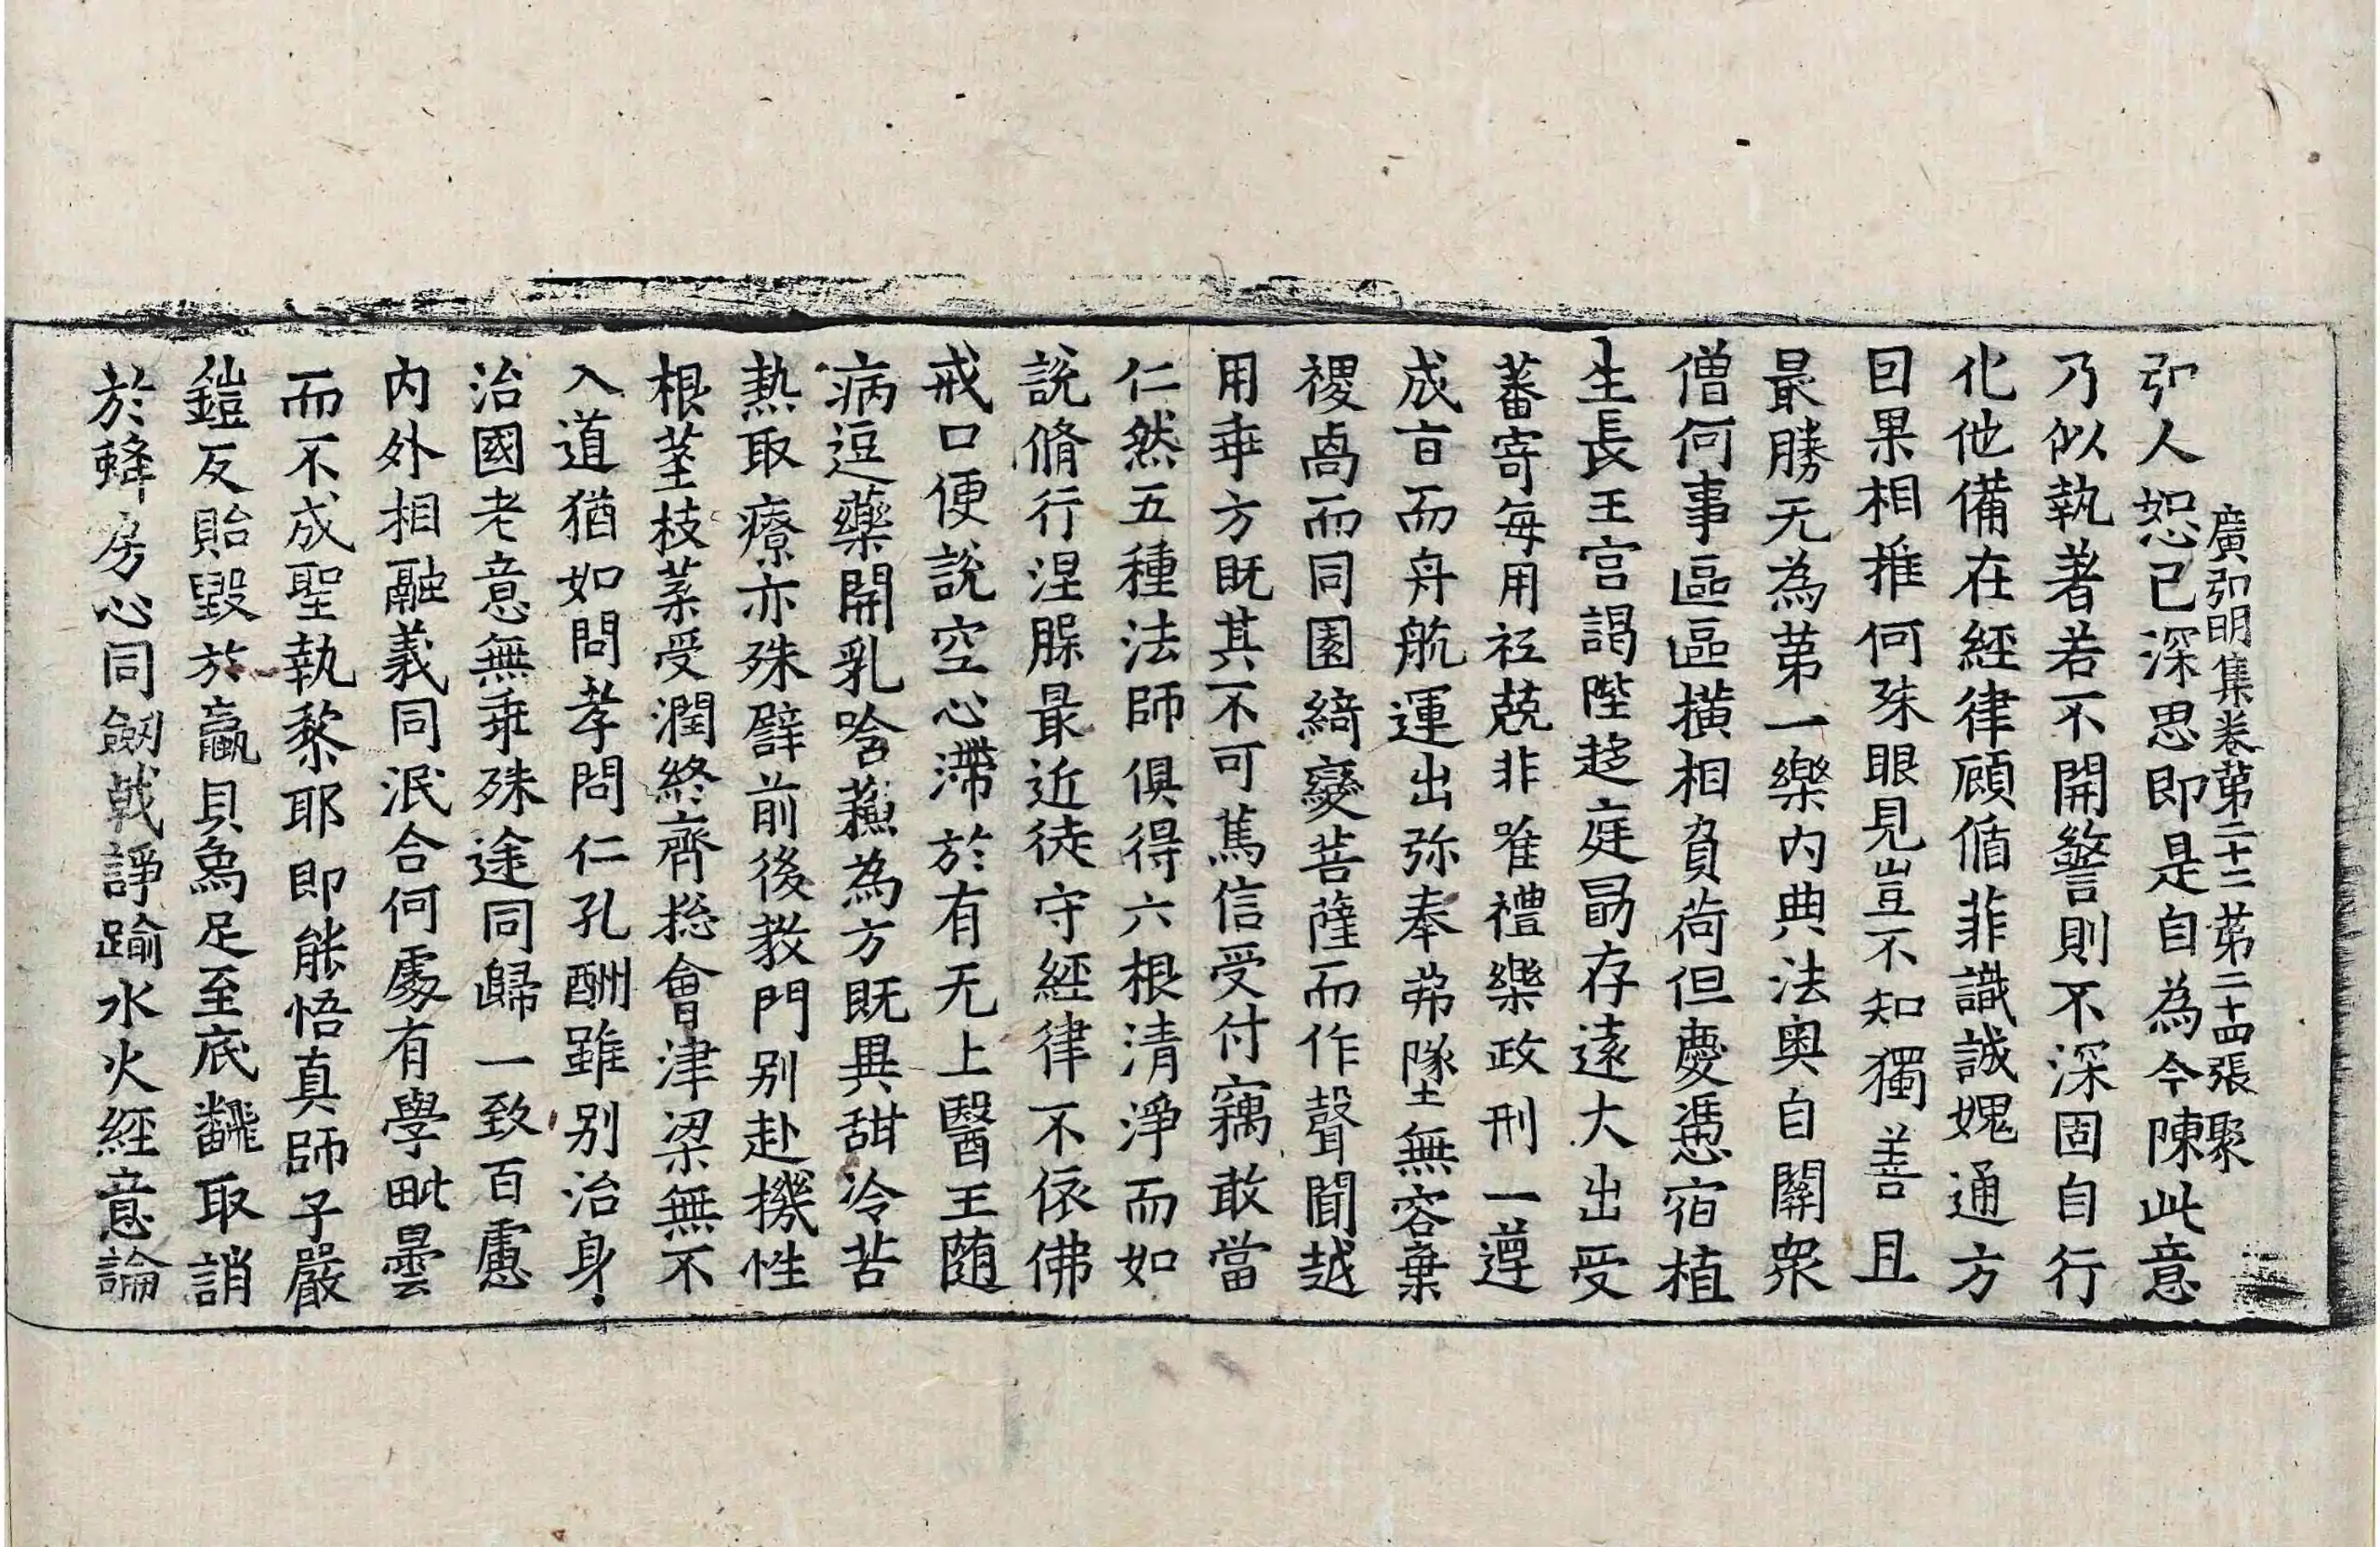 廣弘明集卷第二十二 第二十四張 聚
弘人恕已深思即是自為今陳此意
乃似執著若不開警則不深固自行
化他備在經律顧循菲識誠媿通方
回果相推何殊眼見豈不知獨善且
最勝无為第一樂內典法奧自關衆
僧何事區區橫相負荷但慶憑宿植
生長王宮謁陛趍庭勗存遠大出受
蕃寄每用祗兢非唯禮樂政刑一遵
成旨而舟航運出弥奉弗墜無容棄
稷卨而同園綺變菩薩而作聲聞越
用乖方既其不可篤信受付竊敢當
仁然五種法師俱得六根清淨而如
說脩行涅槃最近徒守經律不依佛
戒口便說空心滯於有无上醫王隨
病逗藥開乳唅蘓為方既異甜冷苦
熱取療亦殊譬前後教門別赴機性
根莖枝葉受潤終齊揔會津梁無不
入道猶如問孝問仁孔酬雖別治身
治國老意無乖殊途同歸一致百慮
內外相融義同泯合何處有學毗曇
而不成聖執黎耶即能悟真師子嚴
鎧反貽毀於蠃貝為足至底翻取誚
於蜂房心同劔戟諍踰水火經意論